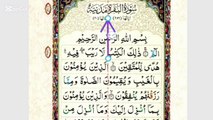 سُورَةُ البَقَرَةِ مَدَنِيَّة
بِسْمِ اللَّهِ الرَّحْمَٰنِ الرَّحِيمِ
الٓمٓ ذَٰلِكَ الْكِتَٰبُ لَا رَيْبَ فِيهِ
هُدًى لِّلْمُتَّقِينَ الَّذِينَ يُؤْمِنُونَ
بِالْغَيْبِ وَيُقِيمُونَ الصَّلَوٰةَ وَمِمَّا
رَزَقْنَٰهُمْ يُنفِقُونَ وَالَّذِينَ يُؤْمِنُونَ
بِمَآ أُنزِلَ إِلَيْكَ وَمَآ أُنزِلَ مِن